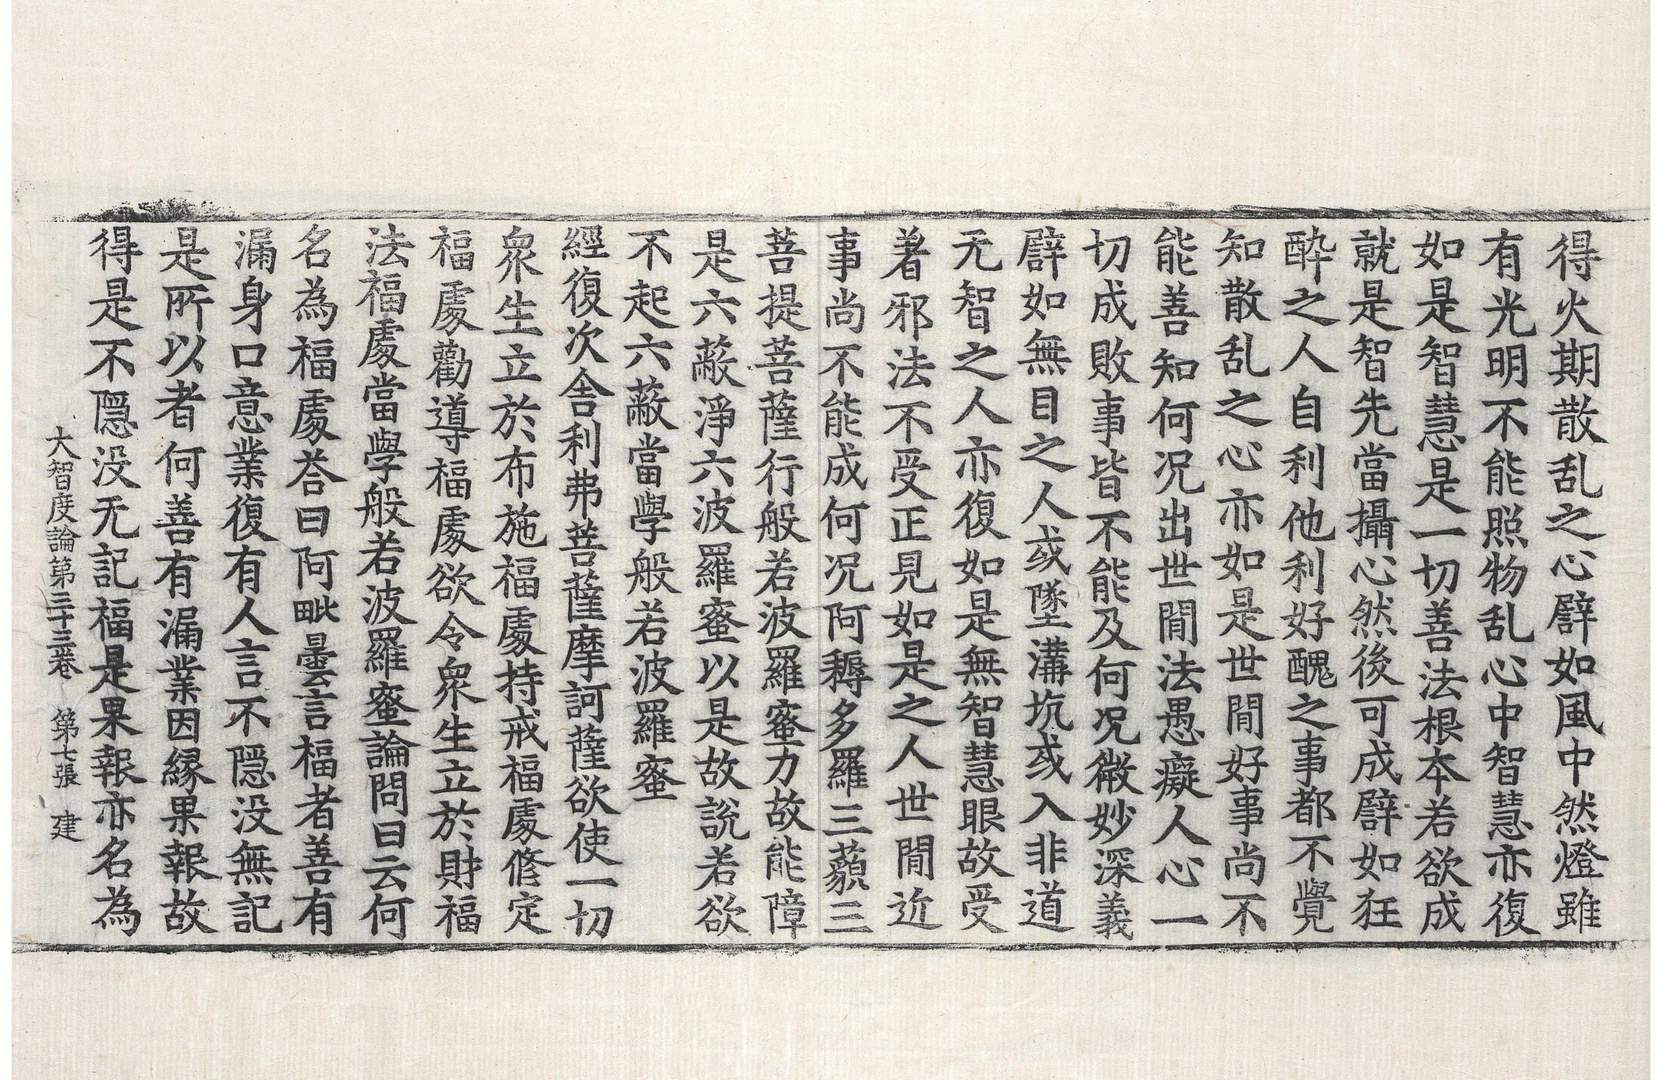 得火期散乱之心譬如風中然燈雖
有光明不能照物乱心中智慧亦復
如是智慧是一切善法根本若欲成
就是智先當攝心然後可成譬如狂
醉之人自利他利好醜之事都不覺
知散乱之心亦如是世間好事尚不
能善知何况出世間法愚癡人心一
切成敗事皆不能及何况微妙深義
譬如無目之人或墜溝坑或入非道
无智之人亦復如是無智慧眼故受
著邪法不受正見如是之人世間近
事尚不能成何况阿耨多羅三藐三
菩提菩薩行般若波羅蜜力故能障
是六蔽淨六波羅蜜以是故說若欲
不起六蔽當學般若波羅蜜
經復次舍利弗菩薩摩訶薩欲使一切
衆生立於布施福處持戒福處修定
福處勸導福處欲令衆生立於財福
法福處當學般若波羅蜜論問曰云何
名為福處荅曰阿毗曇言福者善有
漏身口意業復有人言不隱没無記
是所以者何善有漏業因緣果報故
得是不隱没无記福是果報亦名為
大智度論第三十三卷 第七張 建